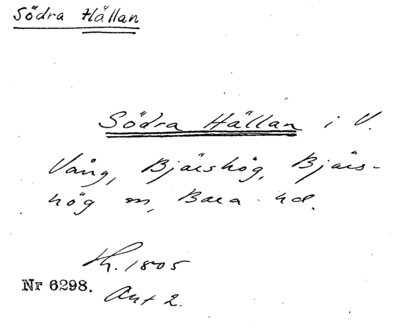 Södra Hällan
Södra Hällan i V.
Vång, Bjärshög, Bjärs-
hög sn, Bara hd.
Lh. 1805
Nr 6298. Akt 2.